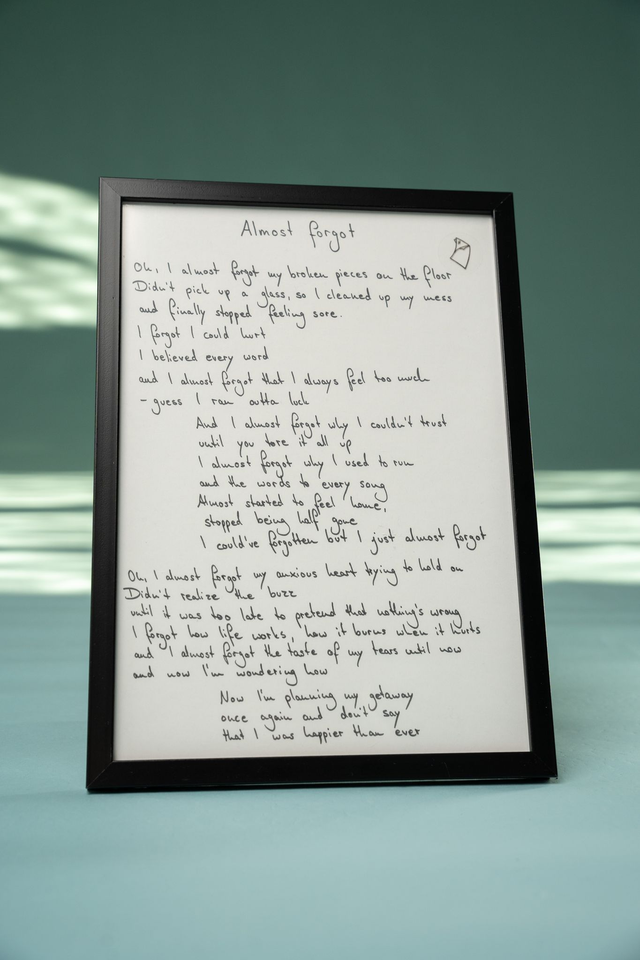 Almost forgot
Oh, I almost forgot my broken pieces on the floor
Didn't pick up a glass, so I cleaned up my mess
and finally stopped feeling sore.
I forgot I could hurt
I believed every word
and I almost forgot that I always feel too much
- guess I ran outta luck
And I almost forgot why I couldn't trust
until you tore it all up
I almost forgot why I used to run
and the words to every song
Almost started to feel home,
stopped being half gone
I could've forgotten but I just almost forgot
Oh, I almost forgot my anxious heart trying to hold on
Didn't realize the buzz
until it was too late to pretend that nothing's wrong
I forgot how life works, how it burns when it hurts
and I almost forgot the taste of my tears until now
and now I'm wondering how
Now I'm planning my getaway
once again and don't say
that I was happier than ever